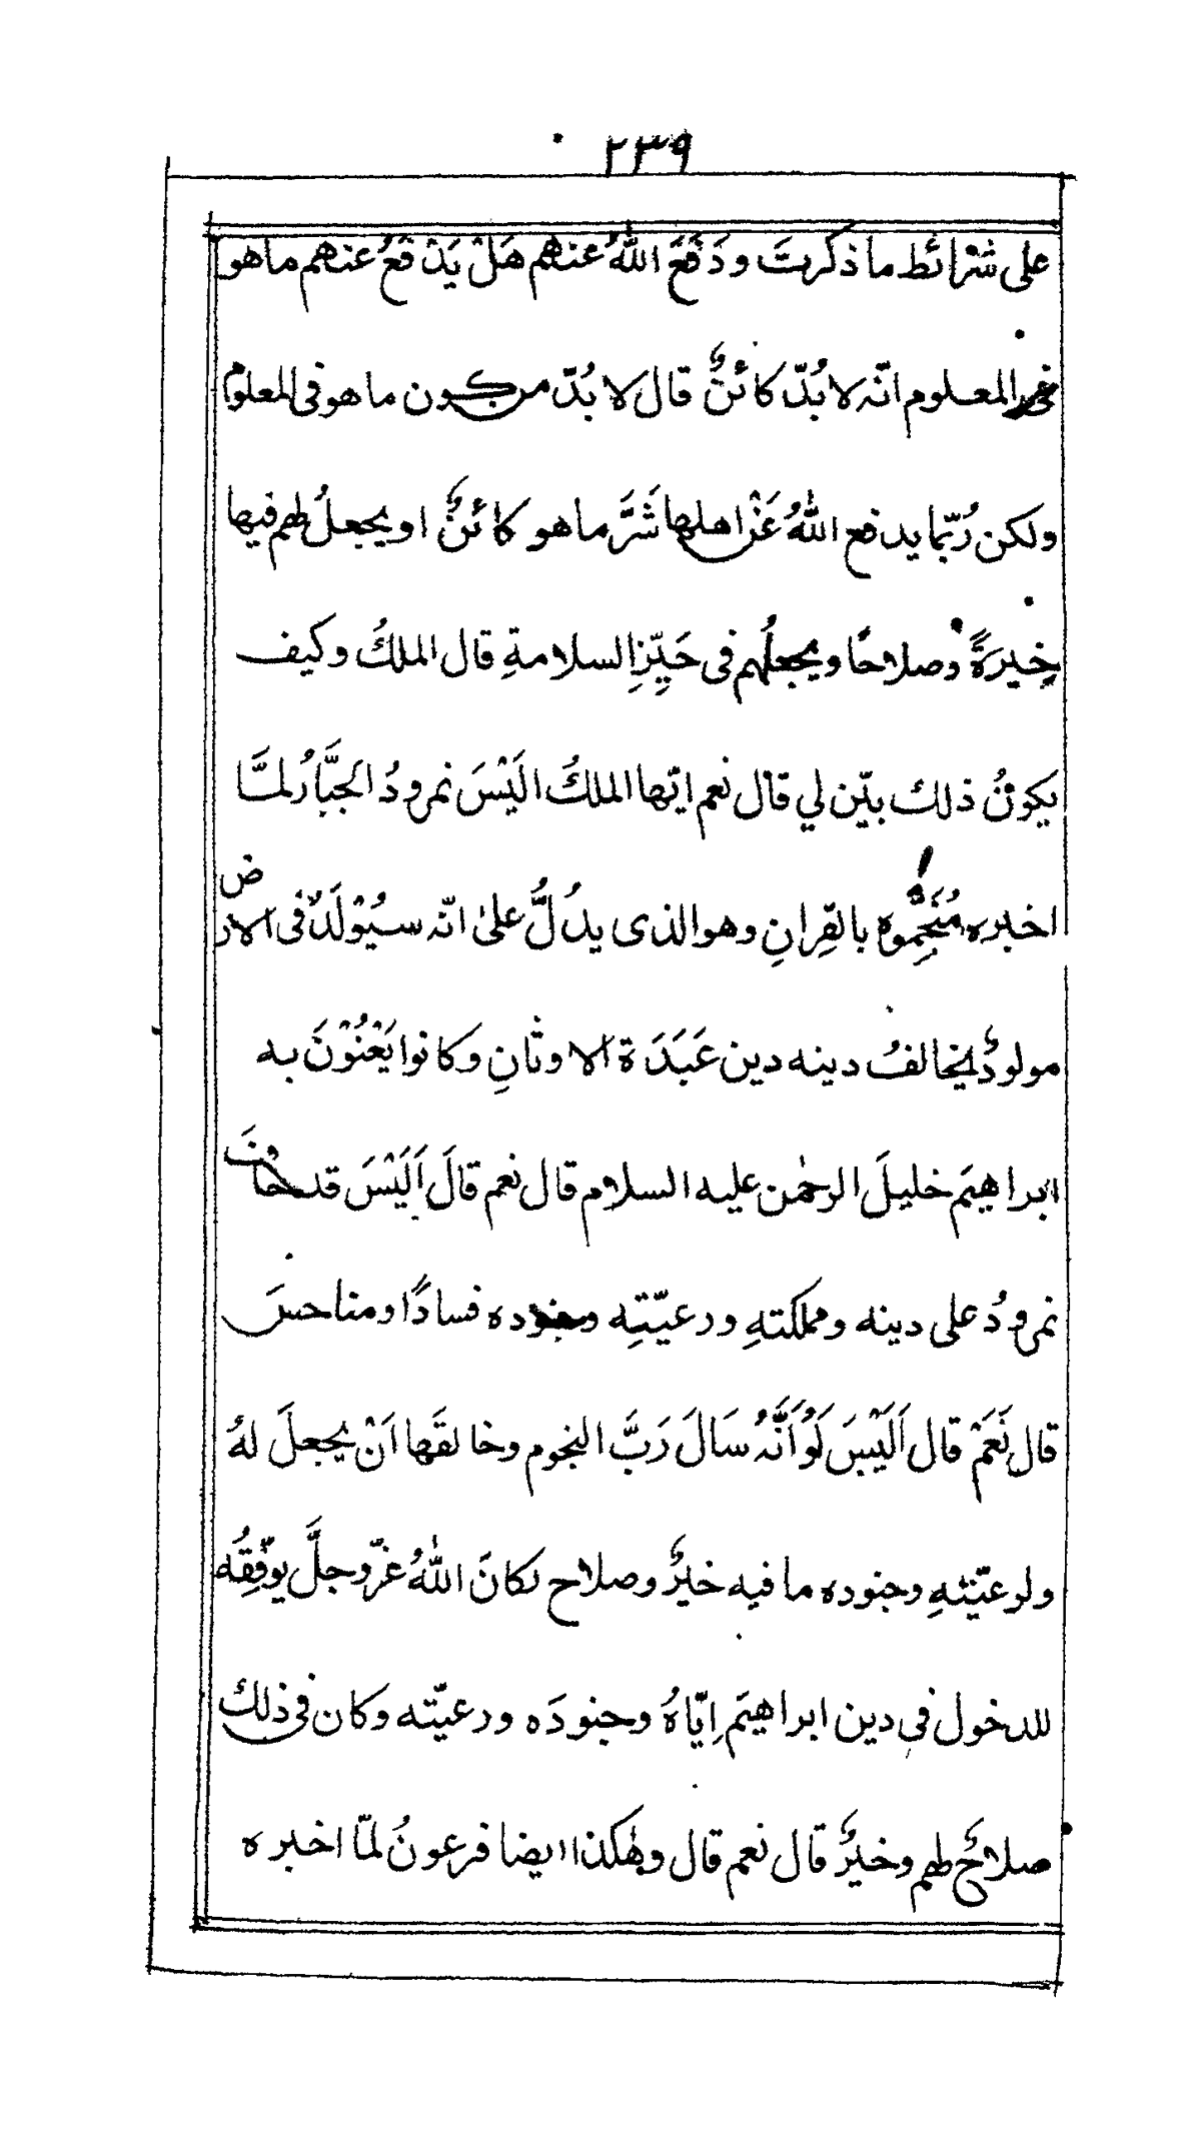 ٢٣٩
على شرائط ما ذكرتَ ودَفَعَ اللهُ عنهم هَلْ يَدْفَعُ عنهم ما هو
فى المعلوم انّه لا بُدّ كائنٌ قال لا بُدّ من كون ما هو فى المعلوم
ولكن رُبّما يدفع اللهُ عَنْ اهلها شَرَّ ما هو كائنٌ او يجعلُ لهم فيها
خِيرَةً وصلاحًا ويجعلُهم فى حَيِّزِ السلامةِ قال الملكُ وكيف
يكونُ ذلك بيّن لي قال نعم ايّها الملكُ اليْسَ نمرودُ الجَبَّارُ لمَّا
اخبره مُنَجِّموه بالقِرانِ وهو الذى يدُلُّ علىٰ انّه سيُوْلَدُ فى الارض
مولودٌ يخالفُ دينه دين عَبَدَة الاوثانِ وكانوا يَعْنُوْنَ به
ابراهيمَ خليلَ الرحمٰن عليه السلام قال نعم قالَ اَلَيْسَ قد خافَ
نمرودُ على دينه ومملكتهِ ورعيّتِه وجنوده فسادًا ومناحسَ
قال نَعَمْ قال اَلَيْسَ لَوْ اَنَّهُ سَالَ رَبَّ النجوم وخالقَها اَنْ يجعلَ لهُ
ولرعيّتهِ وجنوده ما فيه خيرٌ وصلاح لكانَ اللهُ عَزّ وجلَّ يوّفِقُه
للدخول فى دين ابراهيمَ اِيّاهُ وجنودَه ورعيّته وكان فى ذلك
صلاحٌ لهم وخيرٌ قال نعم قال وهٰكذا ايضا فرعونُ لمّا اخبره